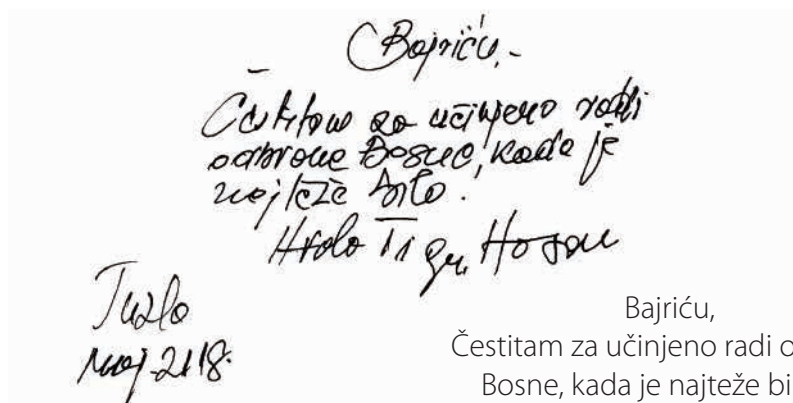 Bajriću,-
Čestitam za učinjeno radi
odbrane Bosne, kada je
najteže bilo.
Hvala Ti gen. Hasan
Tuzla
maj 2118.
Bajriću,
Čestitam za učinjeno radi o
Bosne, kada je najteže bi